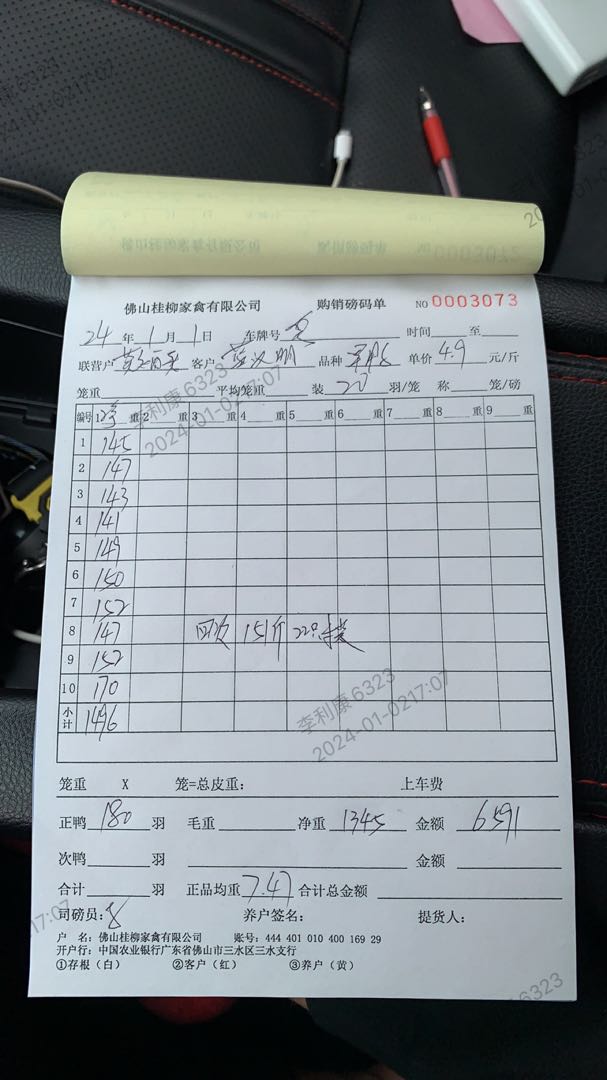 0003072
佛山桂柳家禽有限公司 购销磅码单 NO 0003073
24 年 1 月 1 日 车牌号 时间 至
联营户 客户 品种 单价 4.9 元/斤
笼重 平均笼重 装 20 羽/笼 称 笼/磅
编号 1 净 重 2 重 3 重 4 重 5 重 6 重 7 重 8 重 9 重
1 145
2 147
3 143
4 141
5 149
6 150
7 152
8 147 回收 151斤 22只
9 152
10 170
小计 1496
笼重 X 笼=总皮重: 上车费
正鸭 180 羽 毛重 净重 1345 金额 6591
次鸭 羽 金额
合计 羽 正品均重 7.47 合计总金额
司磅员: 养户签名: 提货人:
户 名: 佛山桂柳家禽有限公司 账号: 444 401 010 400 169 29
开户行: 中国农业银行广东省佛山市三水区三水支行
①存根(白) ②客户(红) ③养户(黄)
李利康 6323
2024-01-0217:07
李利康 6323
2024-01-0217:07